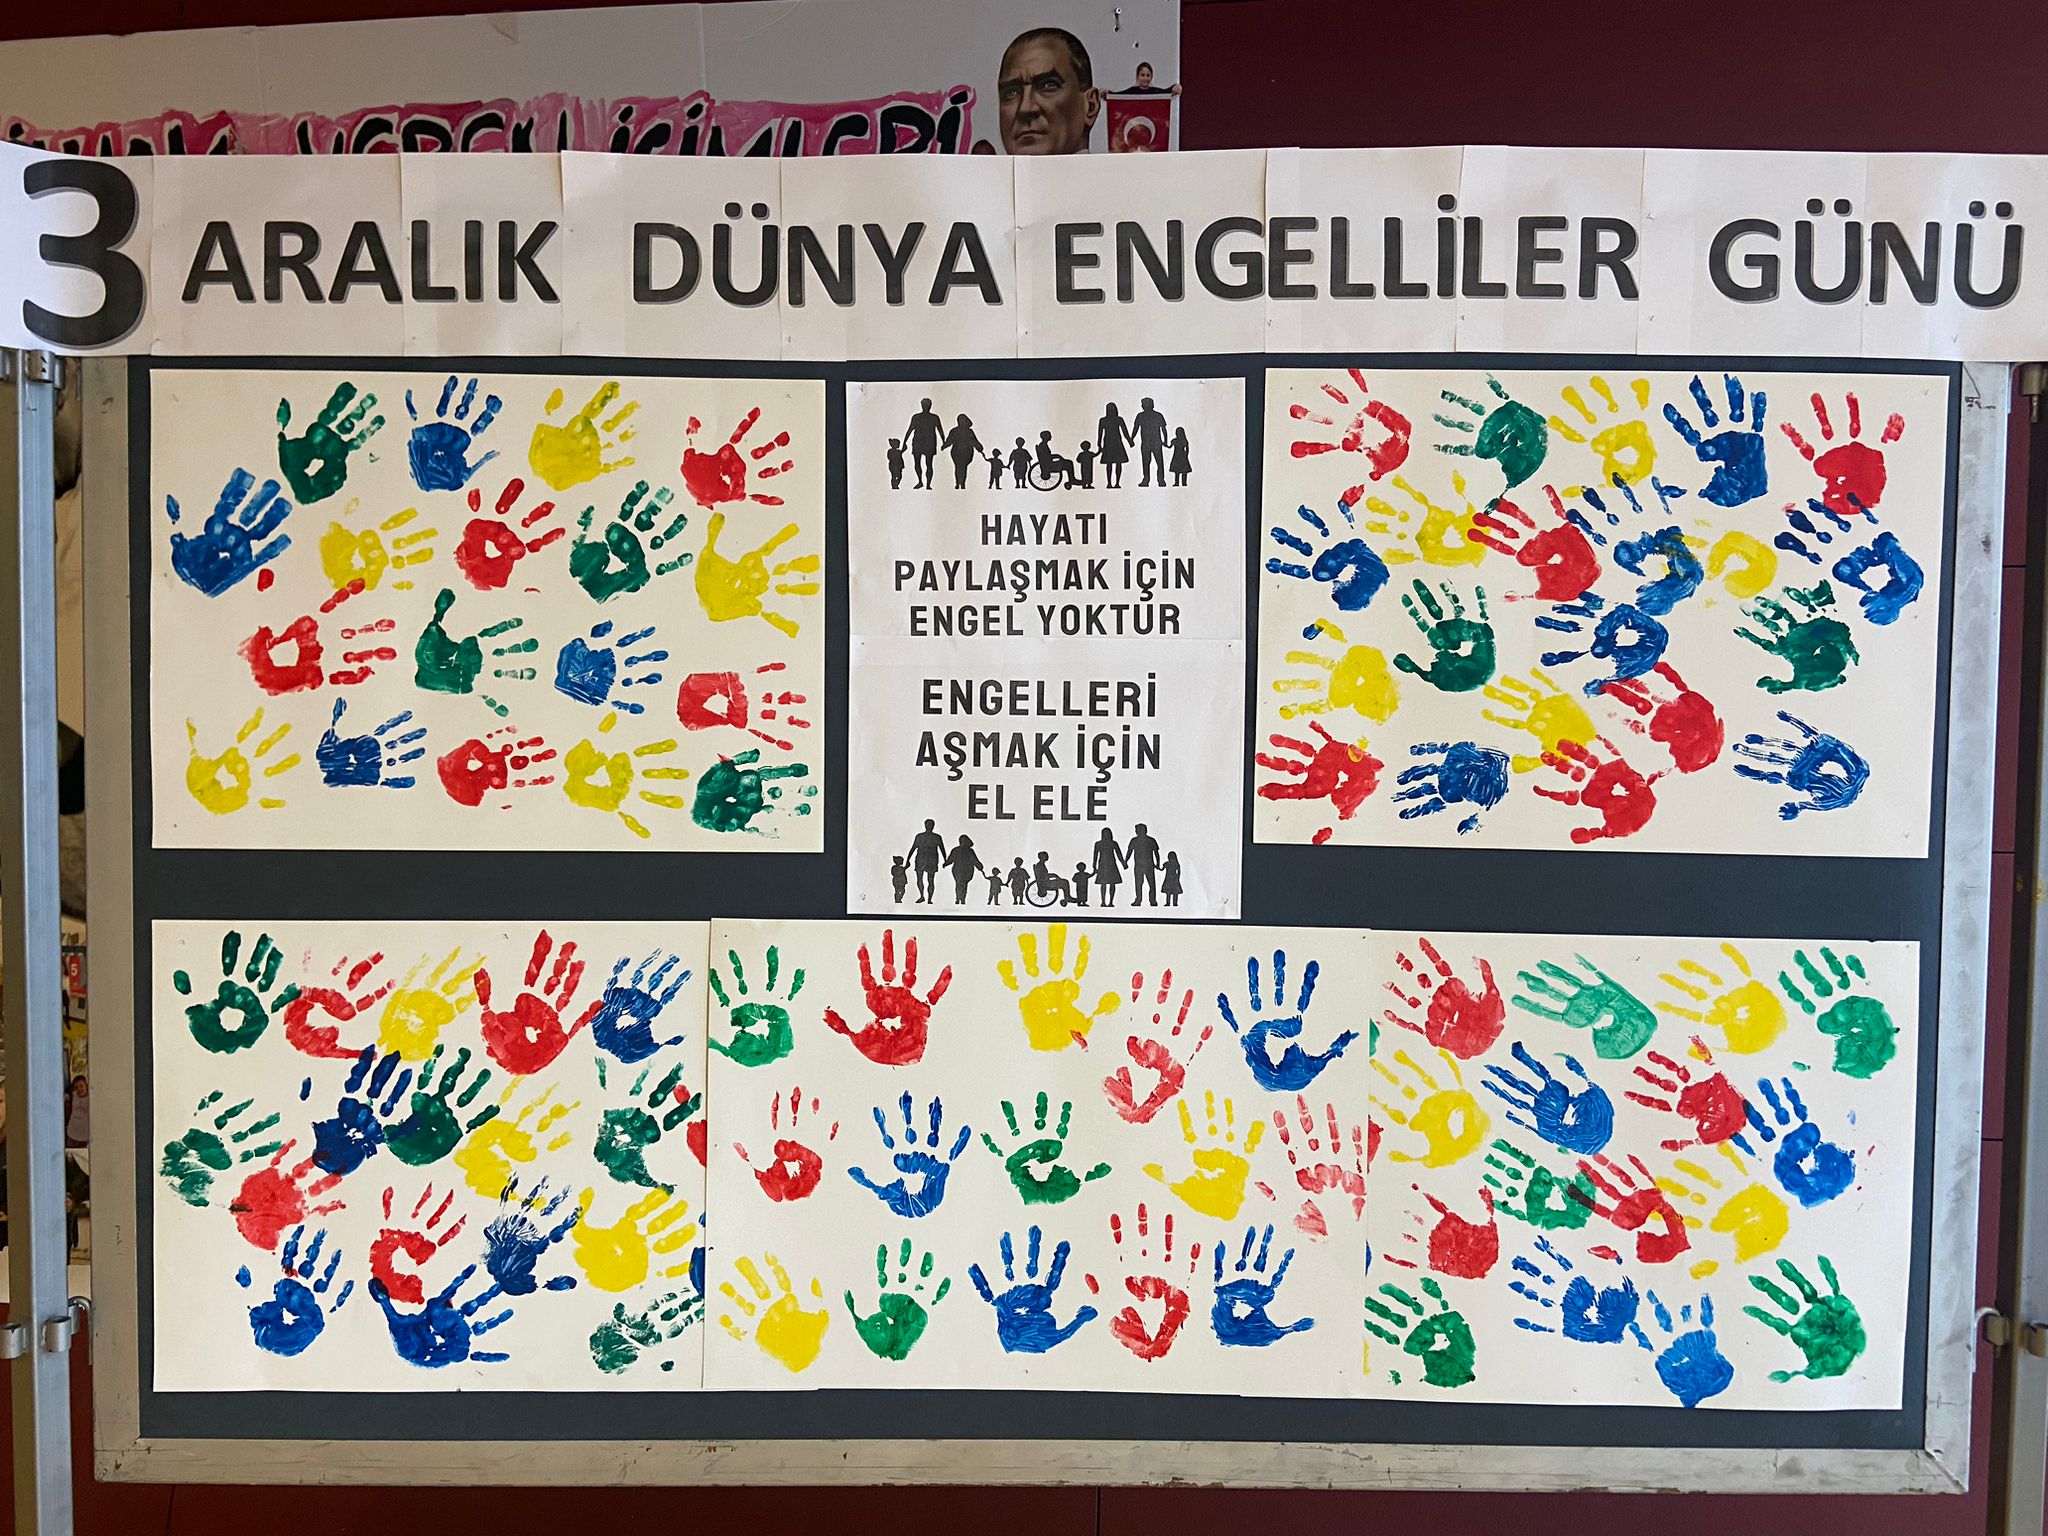 VEREN İSİMLERİ
3 ARALIK DÜNYA ENGELLİLER GÜNÜ
HAYATI
PAYLAŞMAK İÇİN
ENGEL YOKTUR
ENGELLERİ
AŞMAK İÇİN
EL ELE